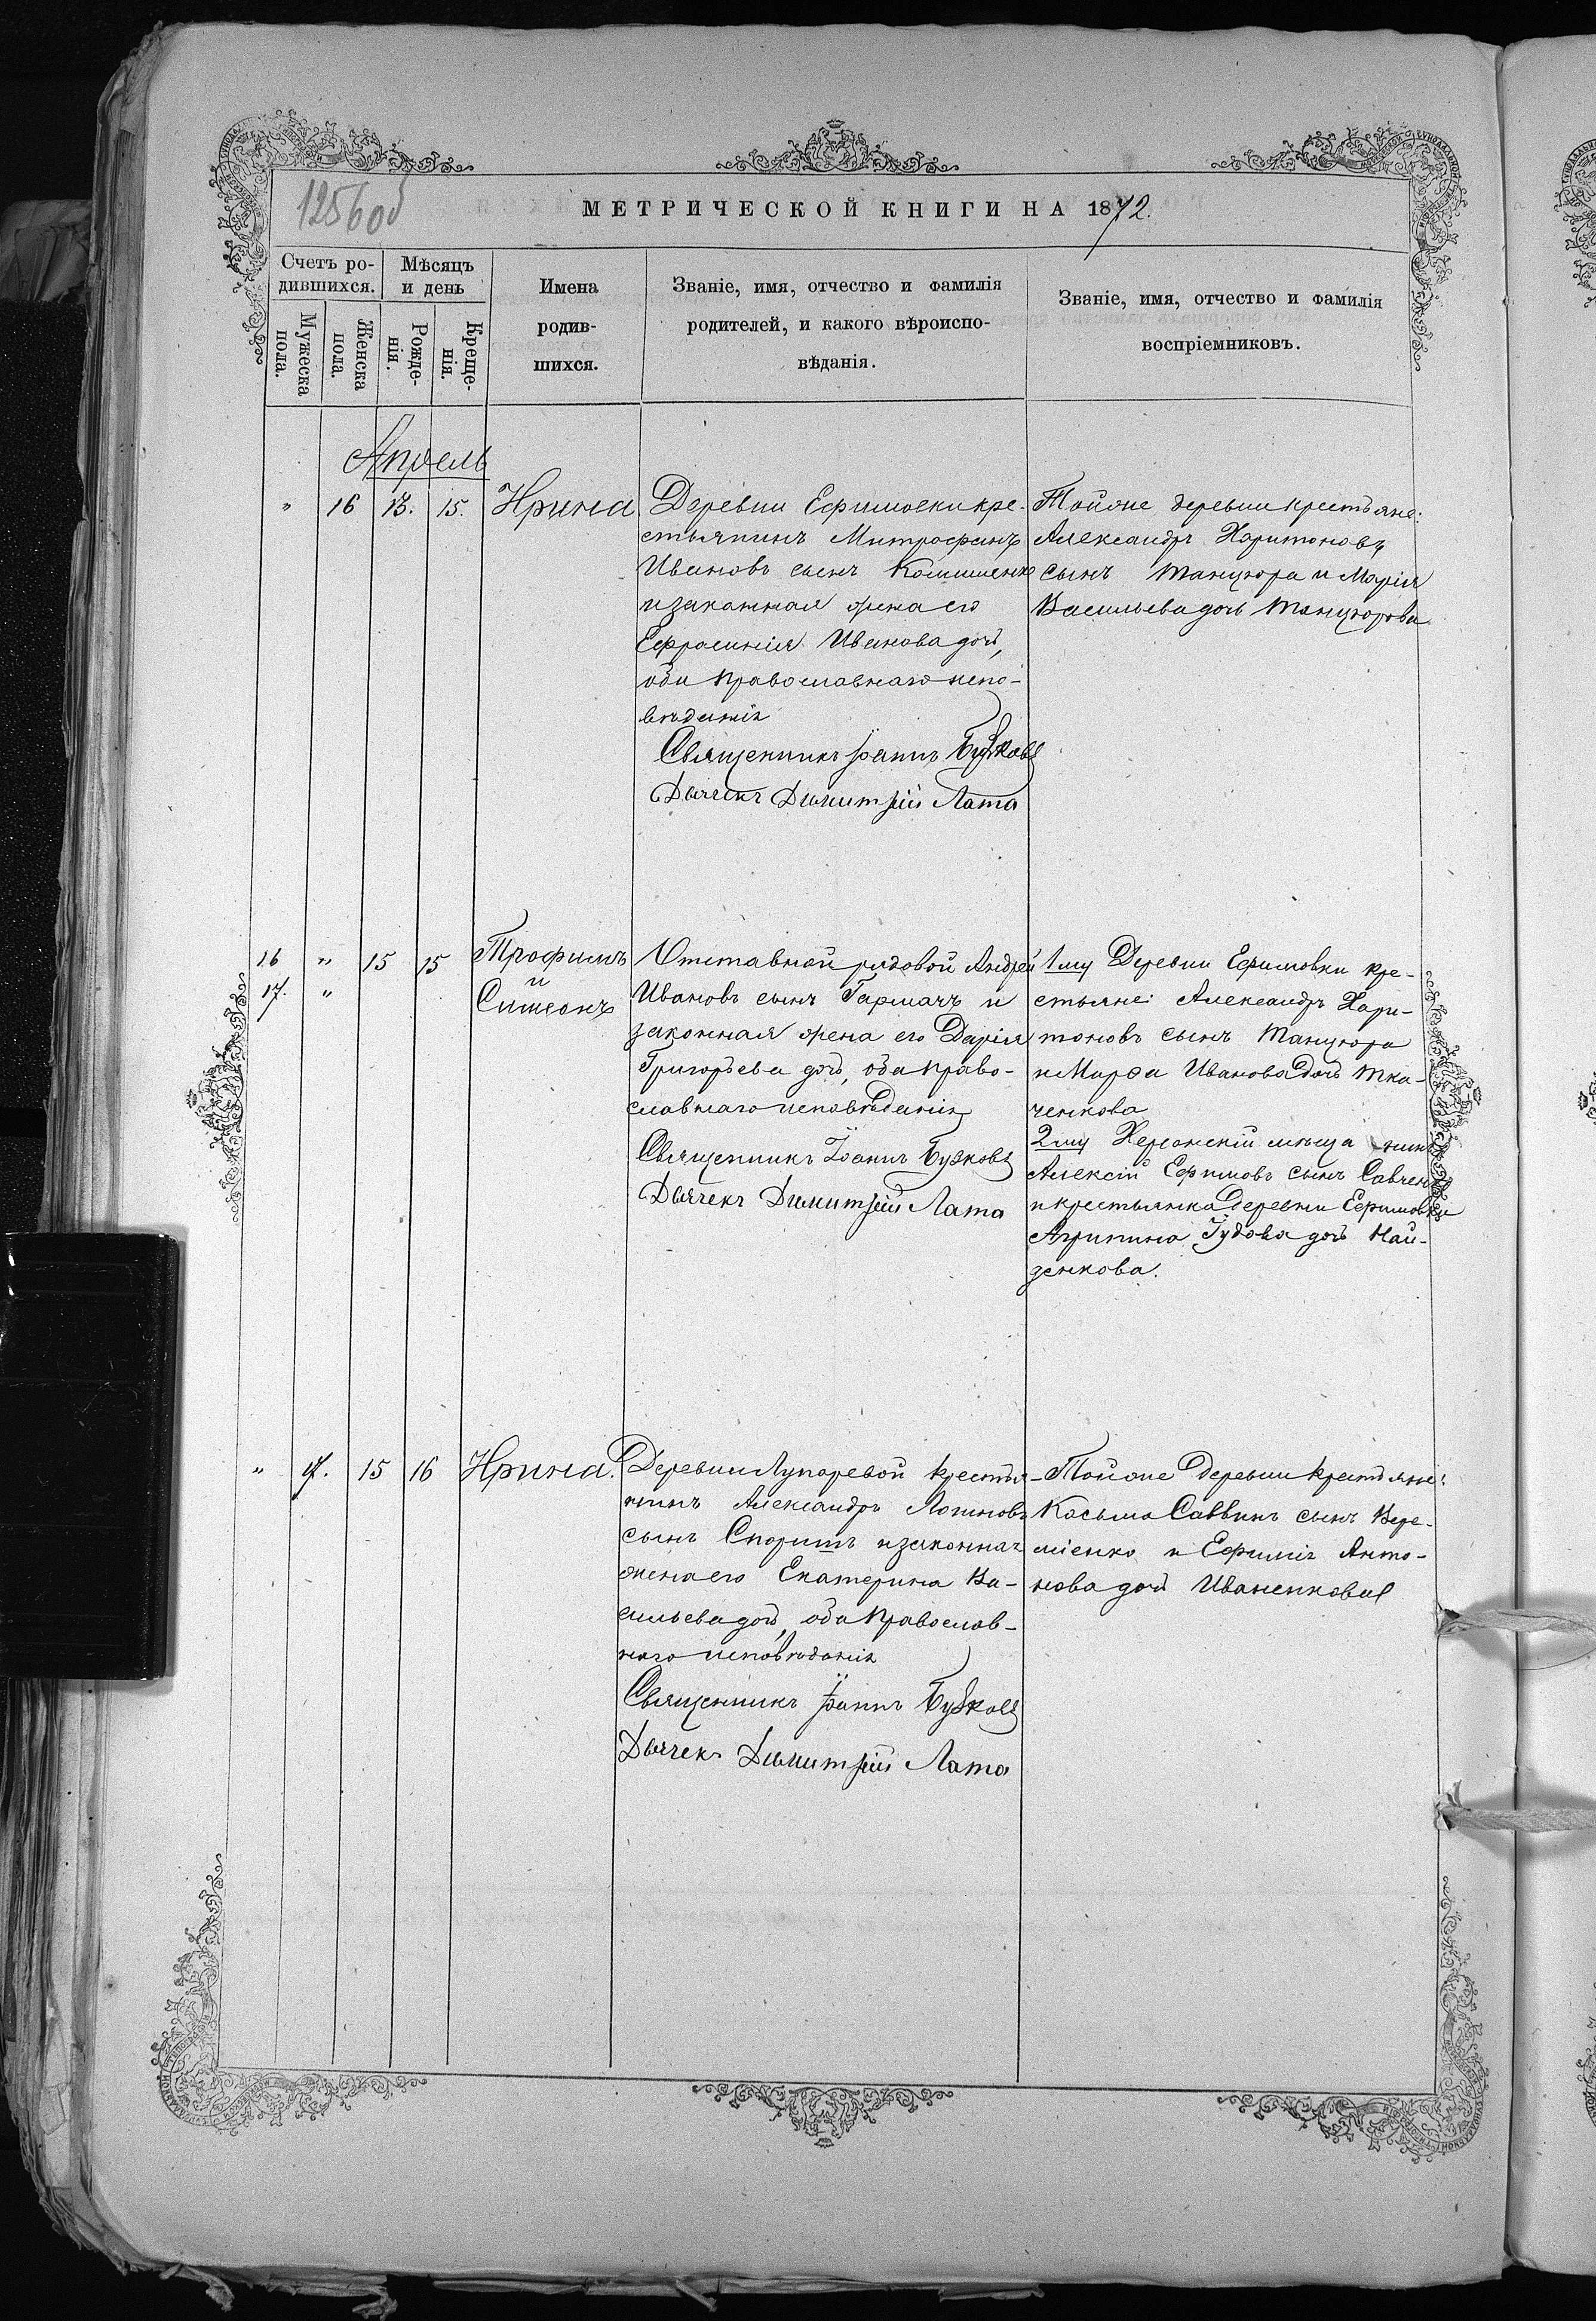 1256об
МЕТРИЧЕСКОЙ КНИГИ НА 1872.
Счетъ ро-
дившихся.
Мѣсяцъ
и день
Мужеска
пола.
Женска
пола.
Рожде-
нія.
Креще-
нія.
Имена
родив-
шихся.
Званіе, имя, отчество и фамилія
родителей, и какого вѣроиспо-
вѣданія.
Званіе, имя, отчество и фамилія
воспріемниковъ.
Апрель
" 16 13. 15. Ирина
Деревни Ефимовки кре-
стьянинъ Митрофанъ
Ивановъ сынъ
и законная жена его
Ефросинія Ивановa дочь,
оба православнаго испо-
вѣданія
Священникъ Іоаннъ Бузковъ
Дьячекъ Димитрій Лата
Тойже деревни крестьяне:
Александръ Харитоновъ
сынъ Танцюра и Марія
Васильева дочь Танцюрова
16 " 15 15 Трофимъ
и
17. " Симеонъ
Отставной рядовой Андрей
Ивановъ сынъ Гармачъ и
законная жена его Дарія
Григорьева дочь, оба право-
славнаго исповѣданія
Священникъ Іоаннъ Бузковъ
Дьячекъ Димитрій Лата
1му Деревни Ефимовки кре-
стьяне: Александръ Хари-
тоновъ сынъ Танцюра
и Марѳа Иванова дочь Тка-
ченкова
2му Херсонскій мѣщанинъ
Алексій Ефимовъ сынъ Савченко
и крестьянка деревни Ефимовки
Агрипина Іудова дочь Най-
денкова.
" 17. 15 16 Ирина.
Деревни Лупаревой крестья-
нинъ Александръ Логиновъ
сынъ Спориш и законная
жена его Екатерина Ва-
сильева дочь, оба православ-
наго исповѣданія
Священникъ Іоаннъ Бузковъ
Дьячекъ Димитрій Лата
Тойже деревни крестьяне:
Косьма Саввинъ сынъ Вере-
міенко и Ефимія Анто-
нова дочь Иваненкова